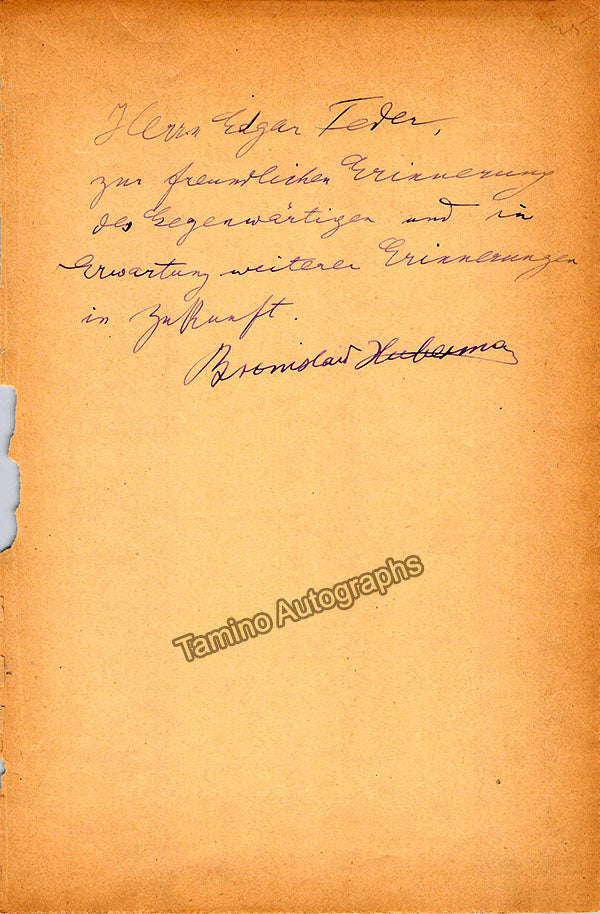 Herrn Edgar Feder,
zur freundlichen Erinnerung
des Gegenwärtigen und in
Erwartung weiterer Erinnerungen
in Zukunft.
Bronislaw Huberman
Tamino Autographs